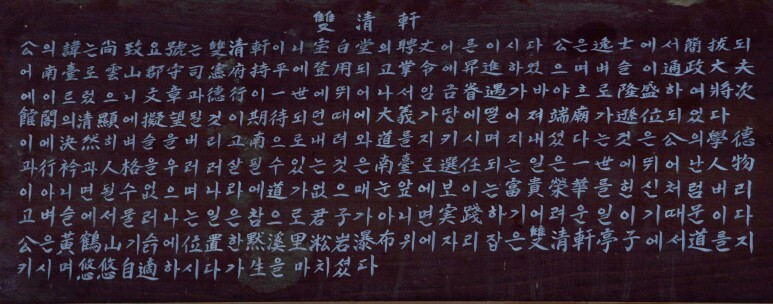 雙淸軒
公의諱는尙致요號는雙淸軒이니宝白堂의聘丈어른이시다 公은逸士에서簡拔되
어南臺로雲山郡守司憲府持平에登用되고掌令에昇進하였으며벼슬이通政大夫
에이르렀으니文章과德行이一世에뛰어나서임금眷遇가바야흐로隆盛하여將次
館閣의淸顯에擬望될것이期待되면때에大義가땅에떨어져端廟가遜位되었다
이에決然히벼슬을버리고南으로내려와道를지키시며지내셨다는것은公의學德
과行衿과人格을우러러살필수있는것은南臺로選任되는일은一世에뛰어난人物
이아니면될수없으며나라에道가없으매눈앞에보이는富貴榮華를헌신처럼버리
고벼슬에서물러나는일은참으로君子가아니면実踐하기어려운일이기때문이다
公은黃鶴山기슭에位置한黙溪里淞岩瀑布위에자리잡은雙淸軒亭子에서道를지
키시며悠悠自適하시다가生을마치셨다